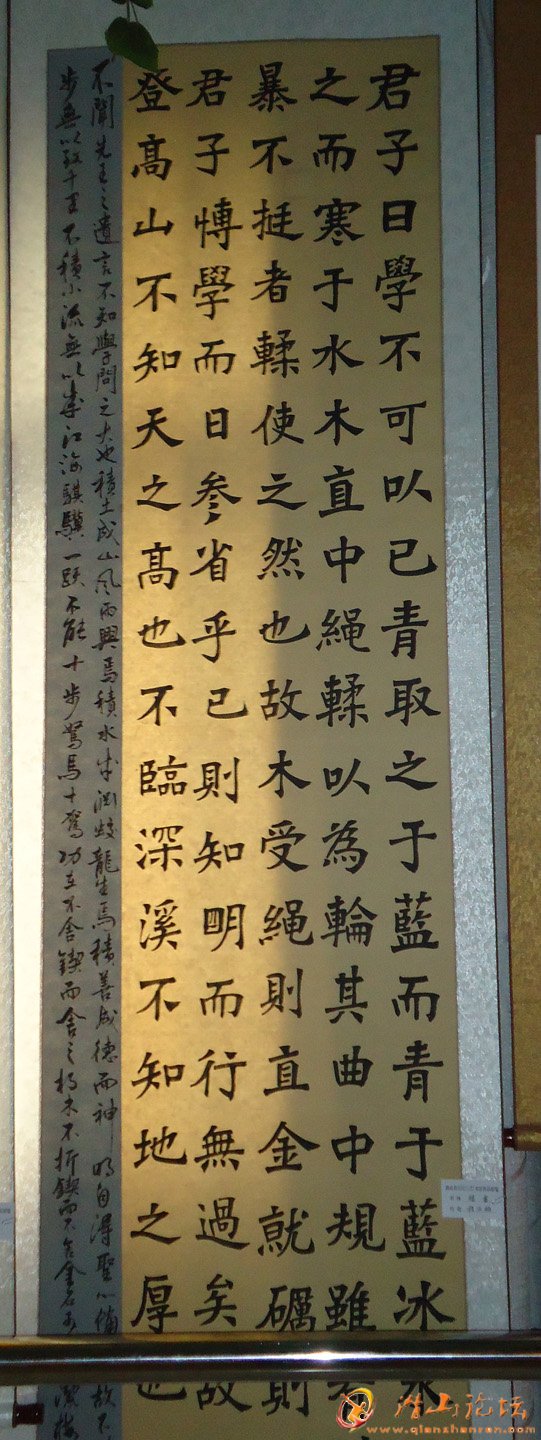 君子曰學不可以已青取之于藍而青于藍冰水
之而寒于水木直中繩輮以為輪其曲中規雖有
暴不挺者輮使之然也故木受繩則直金就礪則
君子愽學而日參省乎己則知明而行無過矣故
登髙山不知天之髙也不臨深溪不知地之厚也
不聞先王之遺言不知學問之大也積土成山風雨興焉積水成淵蛟龍生焉積善成德而神明自得聖心備故不
步無以致千里不積小流無以成江海騏驥一跃不能十步駑馬十駕功在不舍鍥而舍之朽木不折鍥而不舍金石可
潜山论坛
www.qianshanren.com